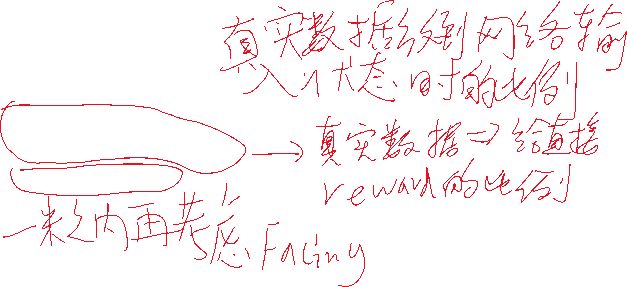 真实数据级到网络输
入状态时的比例
真实数据→给直接
reward的比例
一米之内再考虑Facing